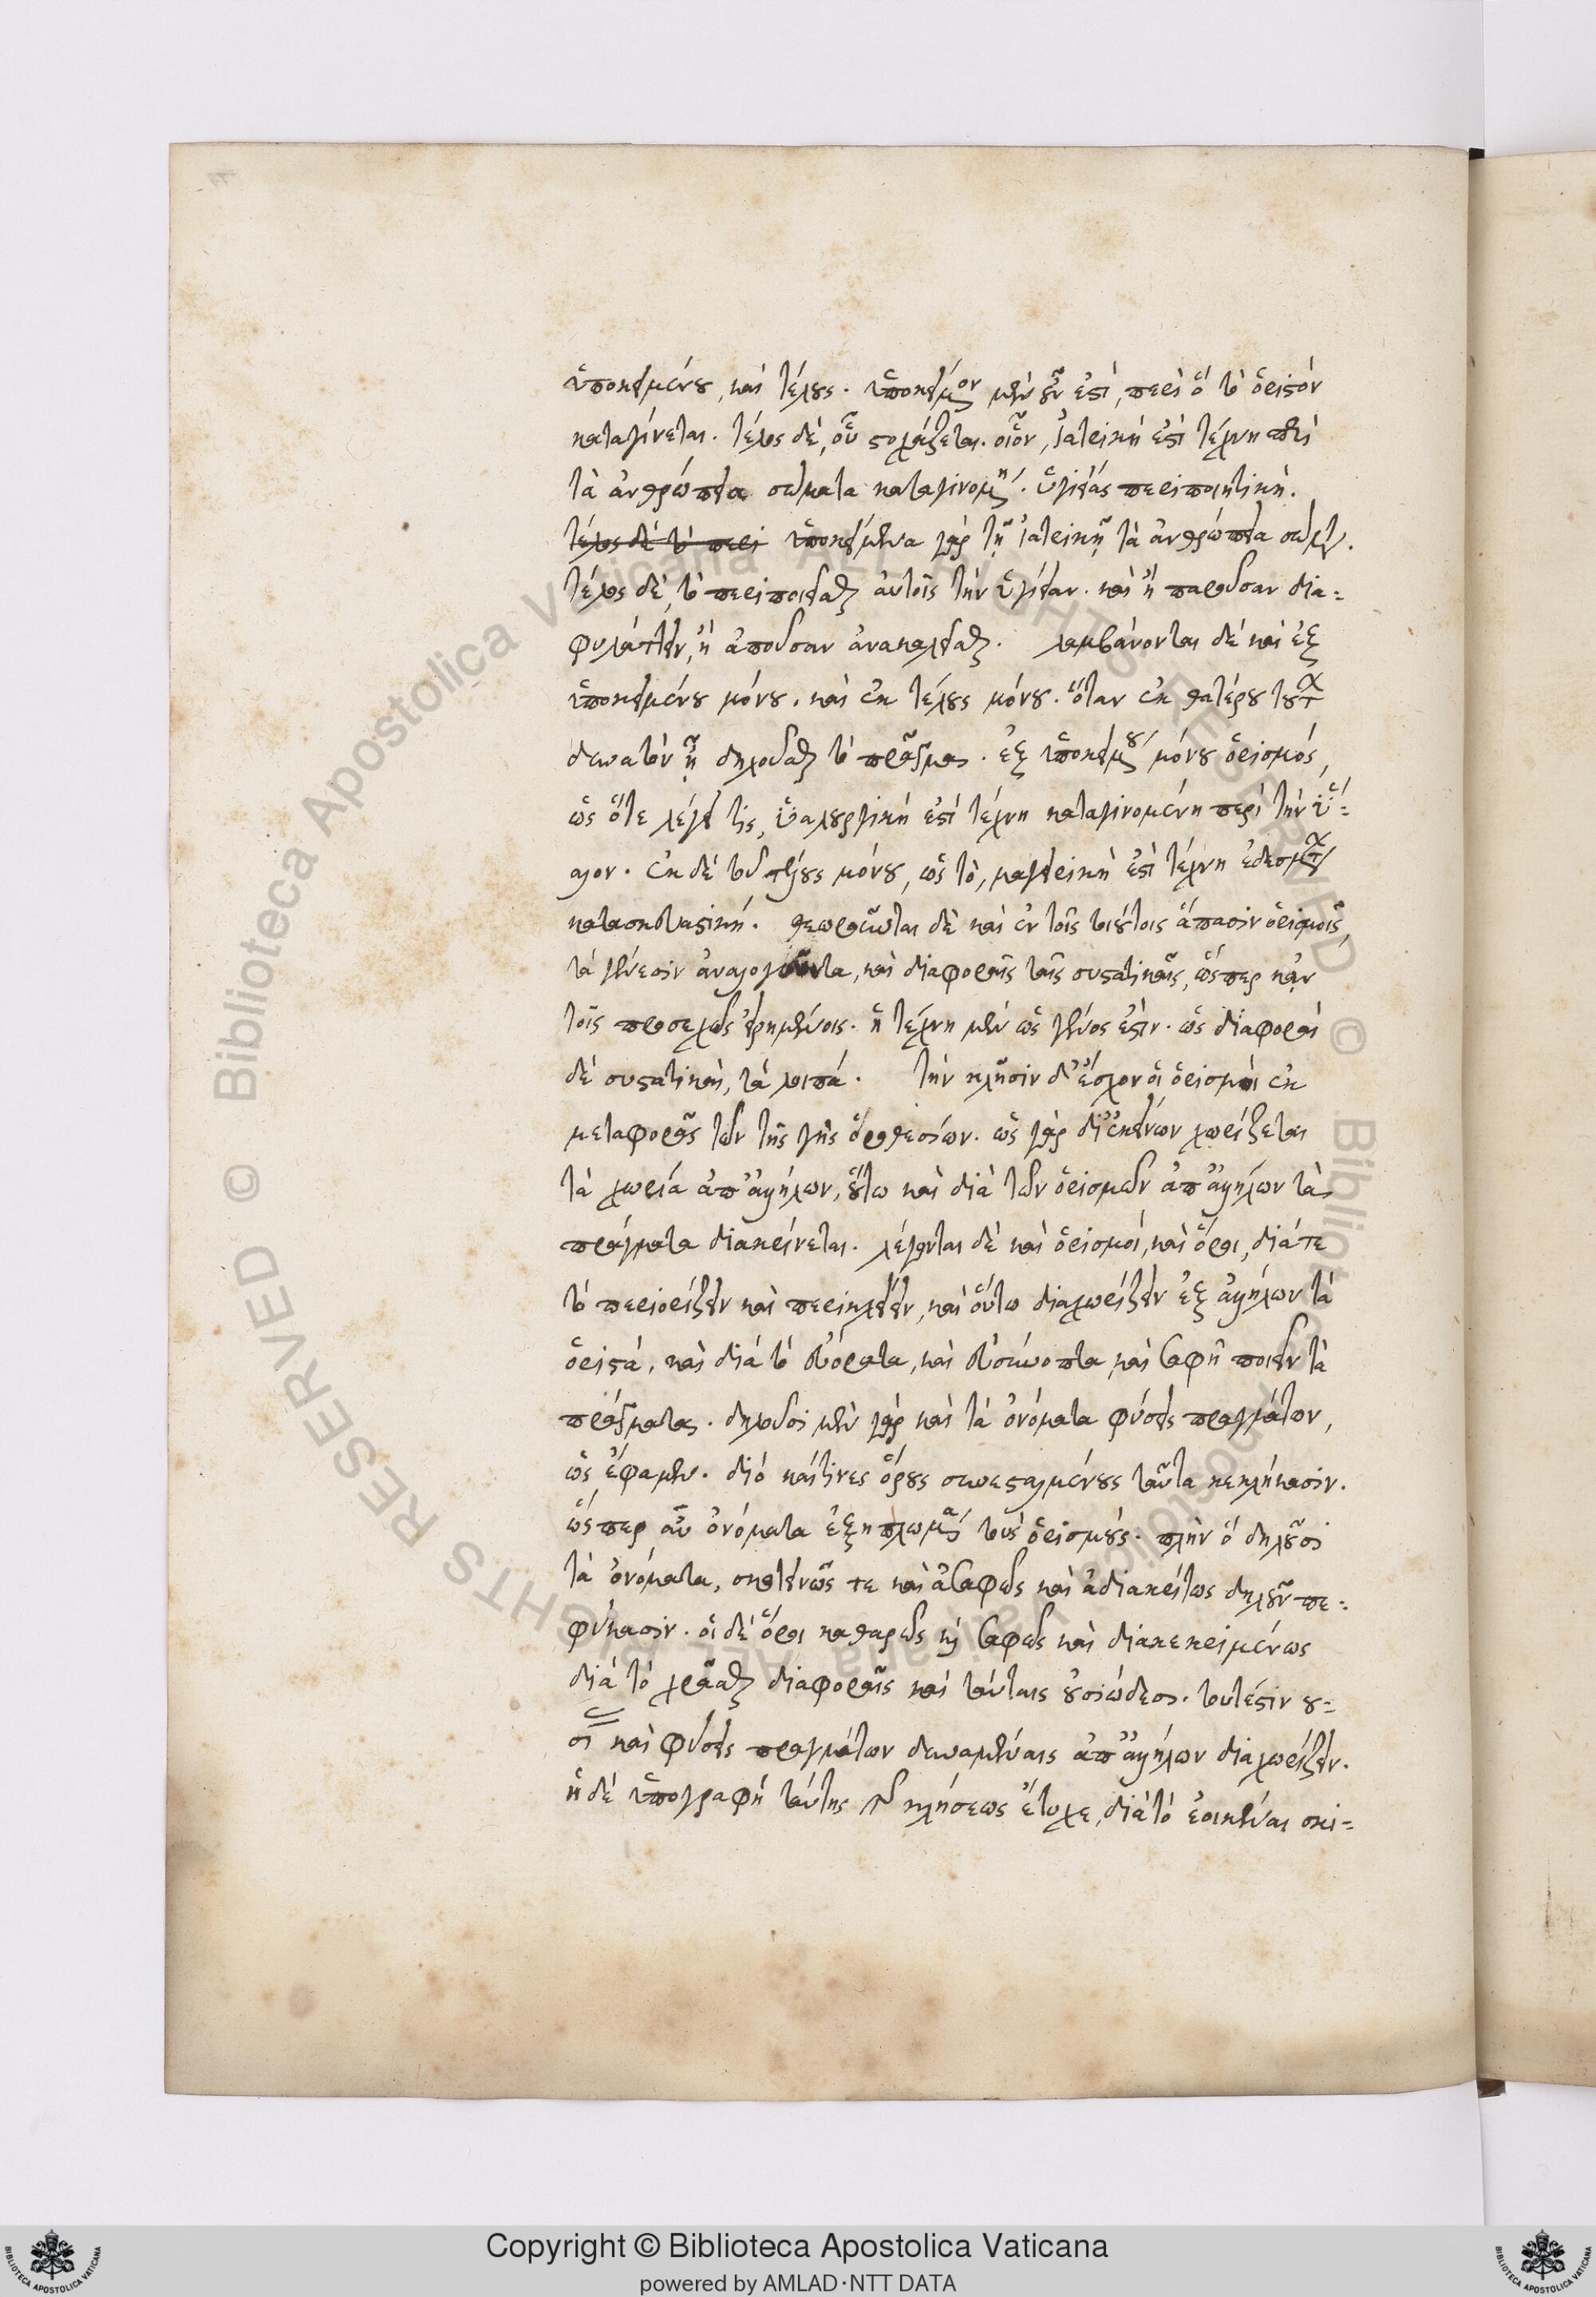 ὑποκειμένου, καὶ τέλους. ὑποκείμενον μὲν οὖν ἐστὶ, περὶ ὃ τὸ ὁριστὸν
καταγίνεται. τέλος δὲ, οὗ στοχάζεται. οἷον, ἰατρικὴ ἐστὶ τέχνη περὶ
τὰ ἀνθρώπεια σώματα καταγινομένη. ὑγιείας περιποιητική.
τέλος δὲ τὸ περι ὑποκείμενα γὰρ τῇ ἰατρικῇ τὰ ἀνθρώπεια σώματα.
τέλος δὲ, τὸ περιποιεῖσθαι αὐτοῖς τὴν ὑγίειαν. καὶ ἢ παροῦσαν δια-
φυλάττειν, ἢ ἀποῦσαν ἀνακαλεῖσθαι. λαμβάνονται δὲ καὶ ἐξ
ὑποκειμένου μόνου. καὶ ἐκ τέλους μόνου. ὅταν ἐκ θατέρου τούτων
δυνατὸν ᾖ δηλοῦσθαι τὸ πρᾶγμα. ἐξ ὑποκειμένου μόνου ὁρισμός,
ὡς ὅτε λέγει τις, ὑαλουργικὴ ἐστὶ τέχνη καταγινομένη περὶ τὴν ὕ-
αλον. ἐκ δὲ τοῦ τέλους μόνου, ὡς τὸ, μαγειρικὴ ἐστὶ τέχνη ἐδεσμάτων
κατασκευαστική. θεωροῦνται δὲ καὶ ἐν τοῖς τοιούτοις ἅπασιν ὁρισμοῖς,
τὰ γένεσιν ἀναλογοῦντα, καὶ διαφοραῖς ταῖς συστατικαῖς, ὥσπερ κἀν
τοῖς προσεχῶς εἰρημένοις. ἡ τέχνη μὲν ὡς γένος ἐστίν. ὡς διαφοραὶ
δὲ συστατικαὶ, τὰ λοιπά. τὴν κλῆσιν δ' ἔσχον οἱ ὁρισμοὶ ἐκ
μεταφορᾶς τῶν τῆς γῆς ὁροθεσίων. ὡς γὰρ δι' ἐκείνων χωρίζεται
τὰ χωρία ἀπ' ἀλλήλων, οὕτω καὶ διὰ τῶν ὁρισμῶν ἀπ' ἀλλήλων τὰ
πράγματα διακρίνεται. λέγονται δὲ καὶ ὁρισμοί, καὶ ὅροι, διά τε
τὸ περιορίζειν καὶ περικλείειν, καὶ οὕτω διαχωρίζειν ἐξ ἀλλήλων τὰ
ὁριστά, καὶ διὰ τὸ εὐόρατα, καὶ εὐσύνοπτα καὶ σαφῆ ποιεῖν τὰ
πράγματα. δηλοῦσι μὲν γὰρ καὶ τὰ ὀνόματα φύσεις πραγμάτων,
ὡς ἔφαμεν. διὸ καί τινες ὅρους συνεσταλμένους ταῦτα κεκλήκασιν.
ὥσπερ αὖ ὀνόματα ἐξηπλωμένα τοὺς ὁρισμούς. πλὴν ὃ δηλοῦσι
τὰ ὀνόματα, σκοτεινῶς τε καὶ ἀσαφῶς καὶ ἀδιακρίτως δηλοῦν πε-
φύκασιν. οἱ δὲ ὅροι καθαρῶς καὶ σαφῶς καὶ διακεκριμένως
διὰ τὸ χρᾶσθαι διαφοραῖς καὶ ταύταις οὐσιώδεσι. τουτέστιν οὐ-
σίας καὶ φύσεις πραγμάτων δυναμέναις ἀπ' ἀλλήλων διαχωρίζειν.
ἡ δὲ ὑπογραφὴ ταύτης τῆς κλήσεως ἔτυχε, διὰ τὸ ἐοικέναι σκι-
Copyright © Biblioteca Apostolica Vaticana
powered by AMLAD·NTT DATA